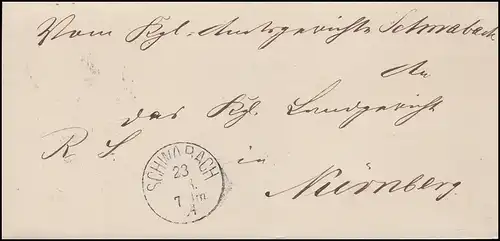 Vom Kgl. Amtsgerichte Schwabach
An
das Kgl. Landgericht
R. S.
in
Nürnberg.
SCHWABACH
23
7 Nm